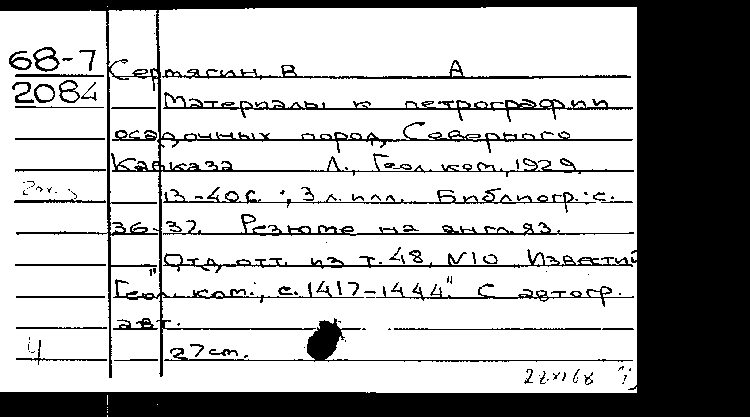 68-7
2084
Сертягин, В А
Материалы к петрографии
осадочных пород Северного
Кавказа Л., Геол. ком., 1929.
13-40 с.; 3 л. илл. Библиогр.: с.
36-37. Резюме на англ. яз.
"Отд. отт. из т. 48, N10 Известий
Геол. ком., с. 1417-1444". С автогр.
авт.
27 cm.
4